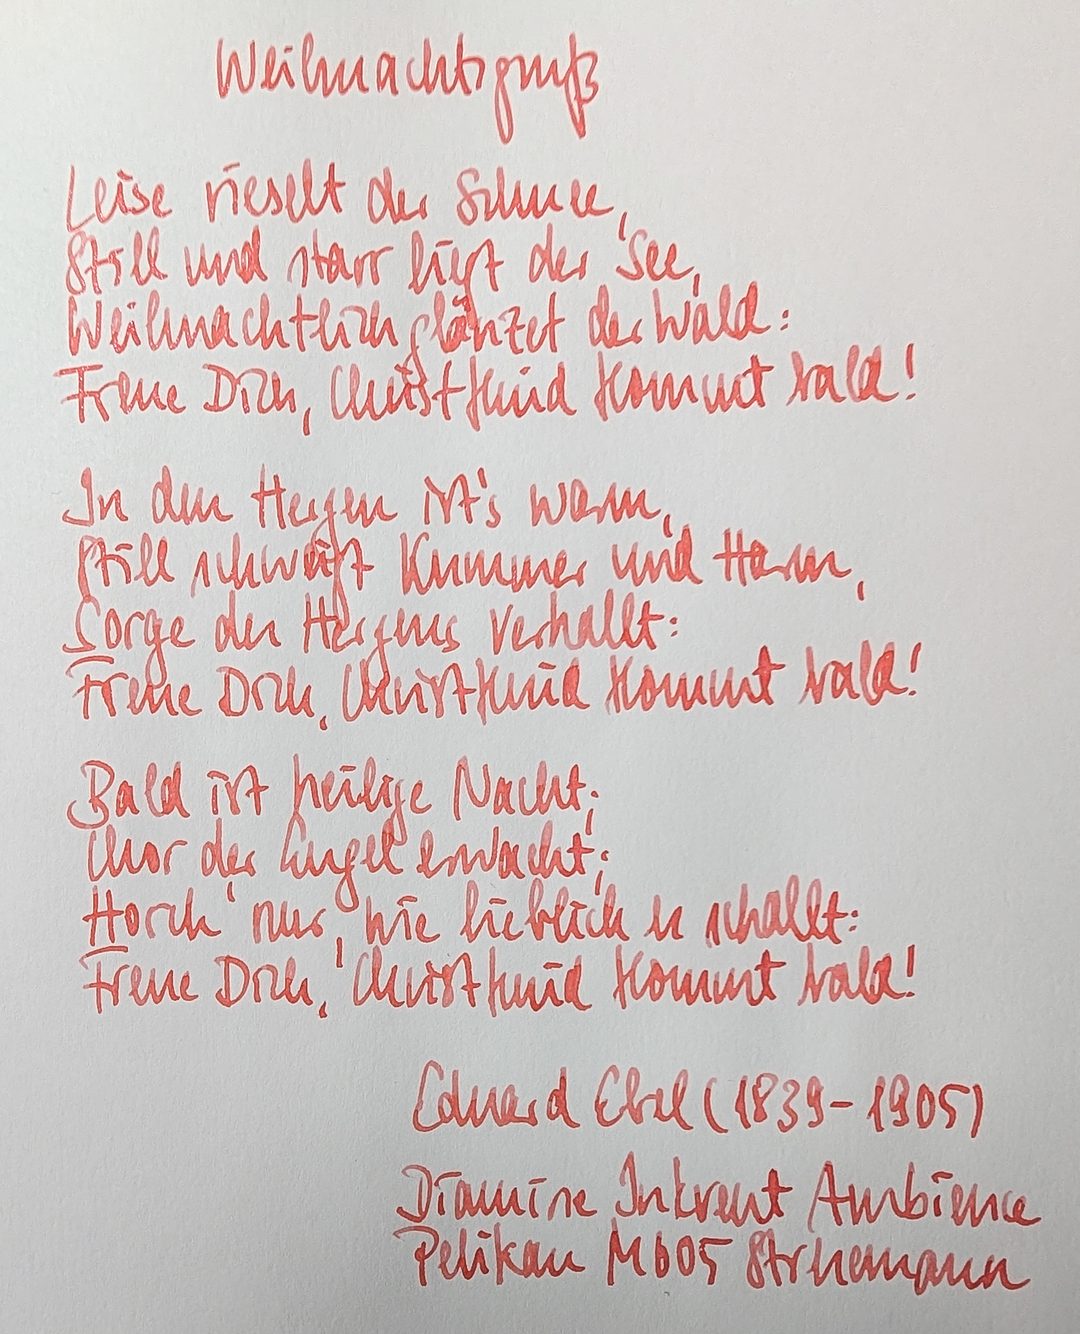 Weihnachtsgruß
Leise rieselt der Schnee,
Still und starr liegt der See,
Weihnachtlich glänzet der Wald:
Freue Dich, Christkind kommt bald!
In den Herzen ist's warm,
Still schweigt Kummer und Harm,
Sorge des Herzens verhallt:
Freue Dich, Christkind kommt bald!
Bald ist heilige Nacht;
Chor der Engel erwacht;
Horch' nur, wie lieblich es schallt:
Freue Dich, Christkind kommt bald!
Eduard Ebel (1839-1905)
Diamine Inkvent Ambience
Pelikan M605 Stresemann